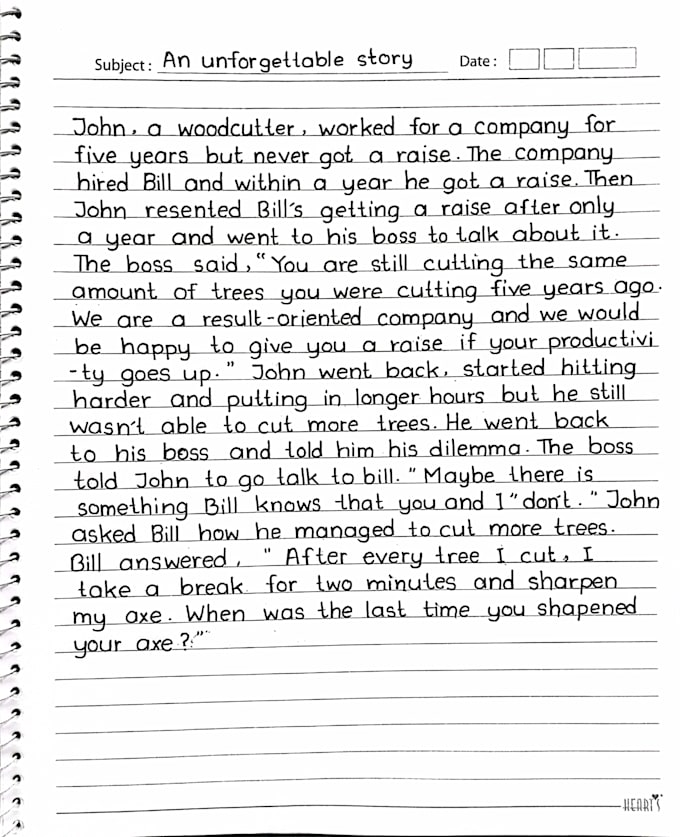 Subject: An unforgettable story Date:
John, a woodcutter, worked for a company for
five years but never got a raise. The company
hired Bill and within a year he got a raise. Then
John resented Bill's getting a raise after only
a year and went to his boss to talk about it.
The boss said, "You are still cutting the same
amount of trees you were cutting five years ago.
We are a result-oriented company and we would
be happy to give you a raise if your productivi
-ty goes up." John went back, started hitting
harder and putting in longer hours but he still
wasn't able to cut more trees. He went back
to his boss and told him his dilemma. The boss
told John to go talk to bill. "Maybe there is
something Bill knows that you and I "don't." John
asked Bill how he managed to cut more trees.
Bill answered, "After every tree I cut, I
take a break for two minutes and sharpen
my axe. When was the last time you shapened
your axe?"
HEART'S